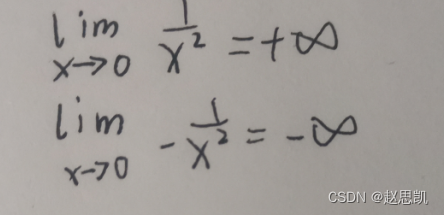 lim x→0 1/x² = +∞
lim x→0 -1/x² = -∞
CSDN @赵思凯